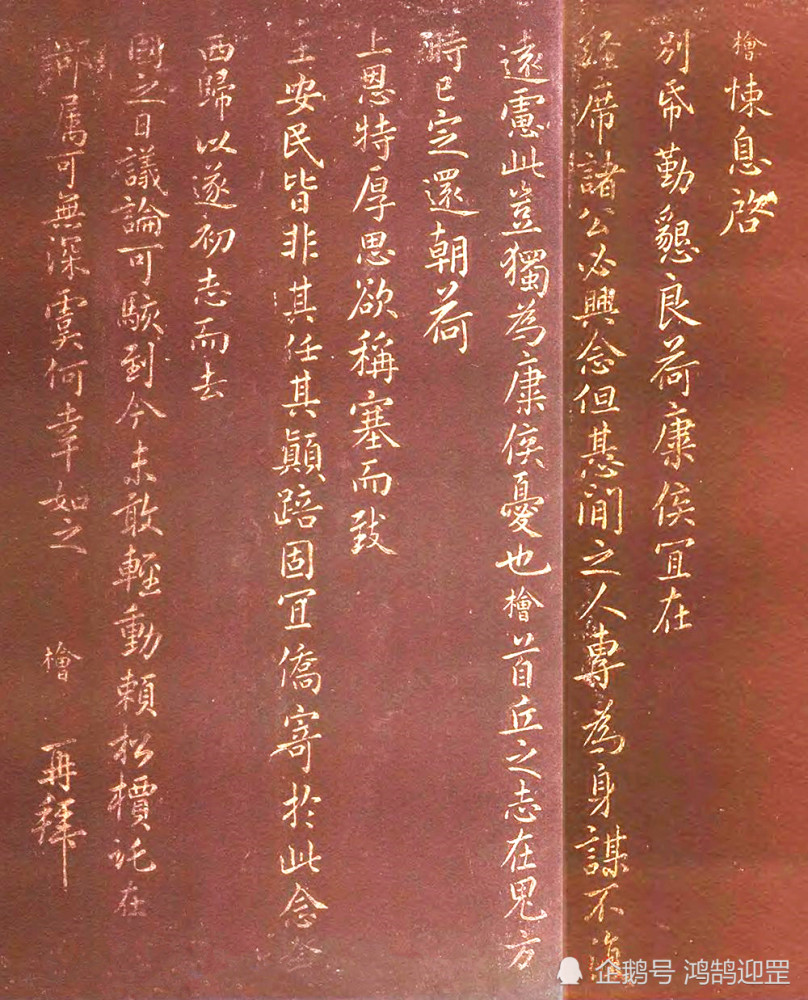 檜悚息啓
別帋勤懇良荷康侯冝在
經席諸公必興念但惎間之人專為身謀不復
遠慮此豈獨為康侯憂也檜首丘之志在見方
時已定還朝荷
上恩特厚思欲稱塞而致
主安民皆非其任其顛踣固冝僑寄於此念
西歸以遂初志而去
國之日議論可駭到今未敢輕動賴松檟託在
鄰属可無深虞何幸如之 檜 再拜
企鹅号 鸿鹄迎罡